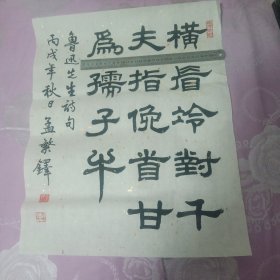 橫眉冷對千
夫指俛首甘
為孺子牛
魯迅先生詩句
丙戌年秋日孟繁鐸